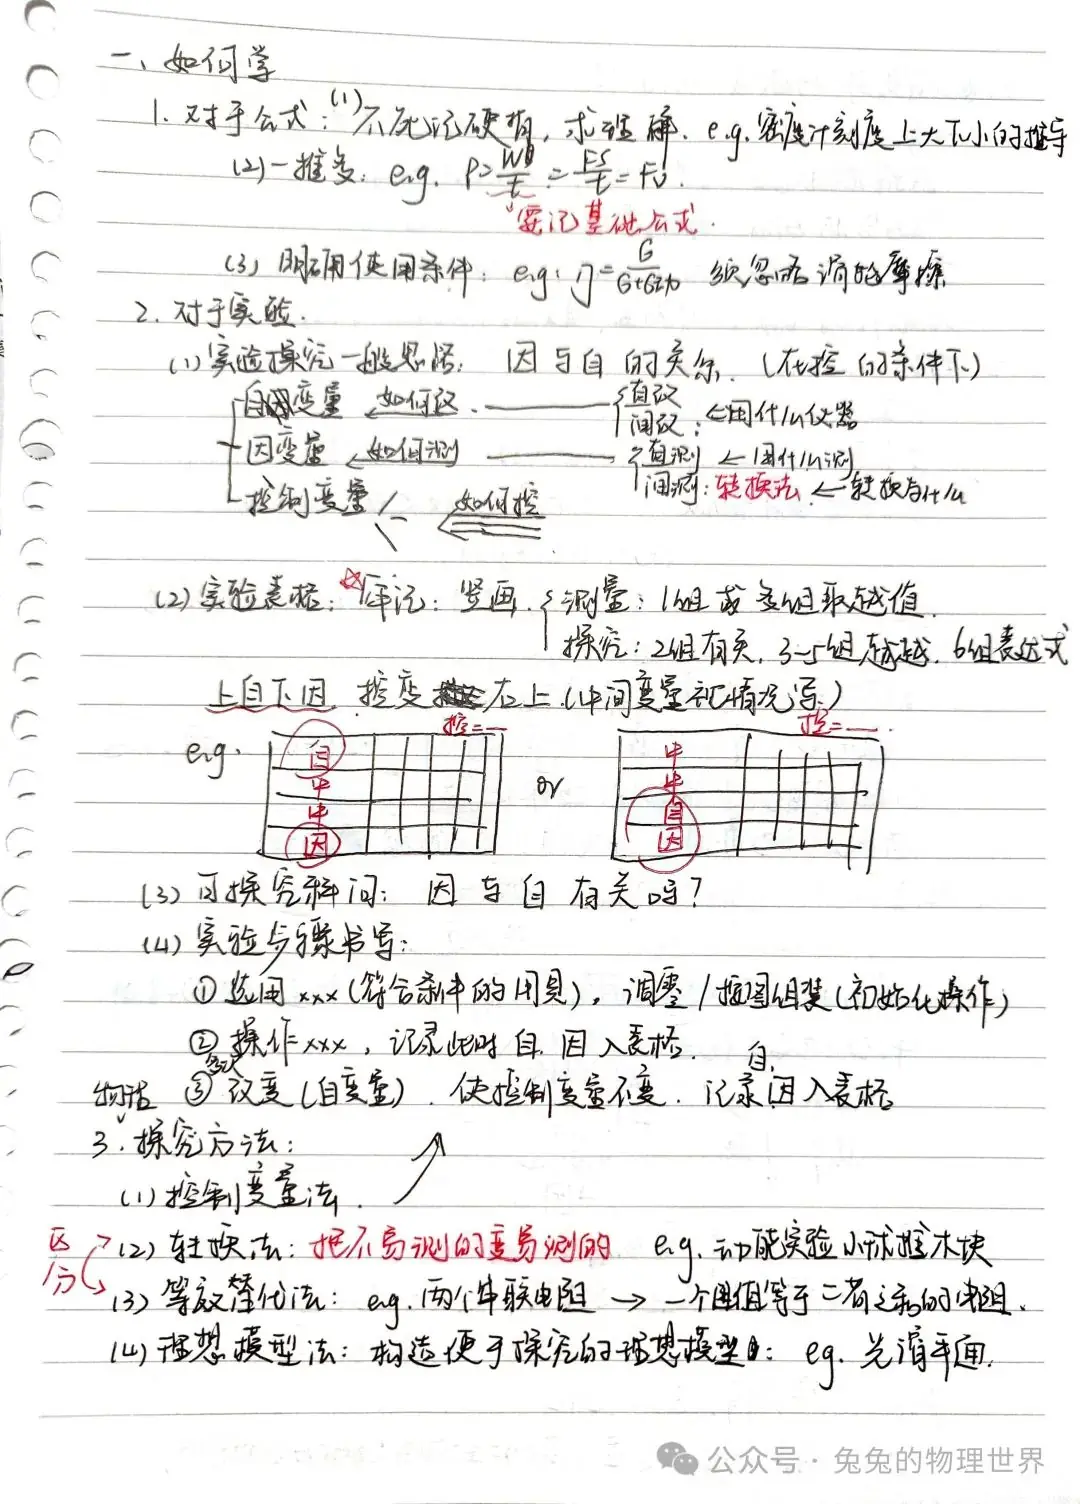 一、如何学
1. 对于公式：(1)不死记硬背，求理解. e.g.密度计刻度上大下小的推导
(2)一推多：e.g. P=W/t=Fs/t=Fv.
要记基础公式.
(3) 明确使用条件：e.g: η=G/(G+G动) 须忽略绳重摩擦
2. 对于实验.
(1)实验探究一般思路： 因与自的关系.（在控的条件下）
自变量 ← 如何改. 直改
间改：←用什么仪器
因变量 ← 如何测 直测 ← 用什么测
间测：转换法 ← 转换为什么
控制变量 如何控
(2)实验表格：牢记：竖画. 测量：1组或多组取越值.
探究：2组有关，3-5组越越，6组表达式
上自下因，控变右上.（中间变量视情况写）
控=— 控=—.
e.g. 自 中 中 因 or 中 中 自 因
(3) 可探究科问：因与自有关吗？
(4) 实验步骤书写：
① 选用xxx(符合条件的用具)，调零/按图组装(初始化操作)
② 操作xxx，记录此时自.因入表格.
③ 多次改变(自变量)，使控制变量不变.记录自.因入表格
3.物活探究方法：
(1)控制变量法.
区分
(2) 转换法：把不易测的变易测的 e.g.动能实验小球推木块
(3) 等效替代法：e.g.两个串联电阻 → 一个阻值等于二者之和的电阻.
(4)理想模型法：构造便于探究的理想模型：eg.光滑平面.
公众号·兔兔的物理世界